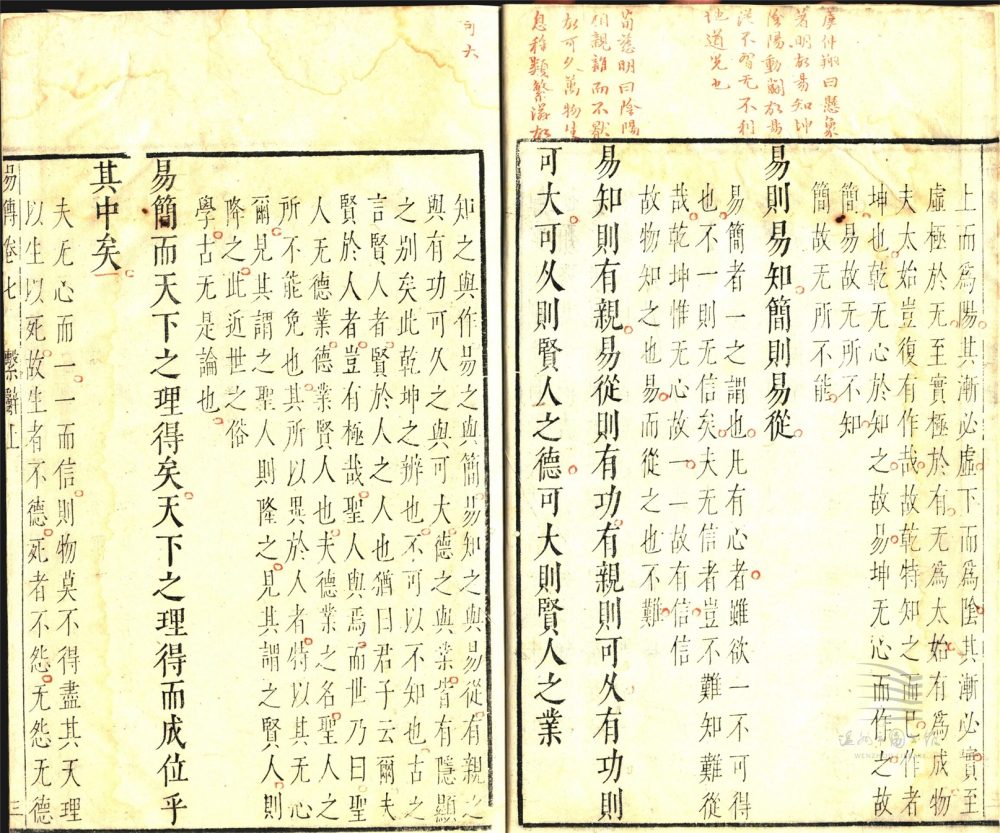 虞仲翔曰懸象
著明故易知坤
陰陽動闢故易
從不習无不利
地道光也
荀慈明曰陰陽
相親雜而不厭
故可久萬物生
息種類繁滋故
可大
上而爲陽其漸必虛下而爲陰其漸必實至
虛極於无至實極於有无爲太始有爲成物
夫太始豈復有作哉故乾特知之而已作者
坤也乾无心於知之故易坤无心而作之故
簡易故无所不知
簡故无所不能
易則易知簡則易從
易簡者一之謂也凡有心者雖欲一不可得
也不一則无信矣夫无信者豈不難知難從
哉乾坤惟无心故一一故有信信
故物知之也易而從之也不難
易知則有親易從則有功有親則可久有功則
可大可久則賢人之德可大則賢人之業
知之與作易之與簡易知之與易從有親之
與有功可久之與可大德之與業皆有隱顯
之別矣此乾坤之辨也不可以不知也古之
言賢人者賢於人之人也猶曰君子云爾夫
賢於人者豈有極哉聖人與焉而世乃曰聖
人无德業德業賢人也夫德業之名聖人之
所不能免也其所以異於人者特以其无心
爾見其謂之聖人則隆之見其謂之賢人則
降之此近世之俗
學古无是論也
易簡而天下之理得矣天下之理得而成位乎
其中矣
夫无心而一一而信則物莫不得盡其天理
以生以死故生者不德死者不怨无怨无德
易傳卷七 繫辭上 三